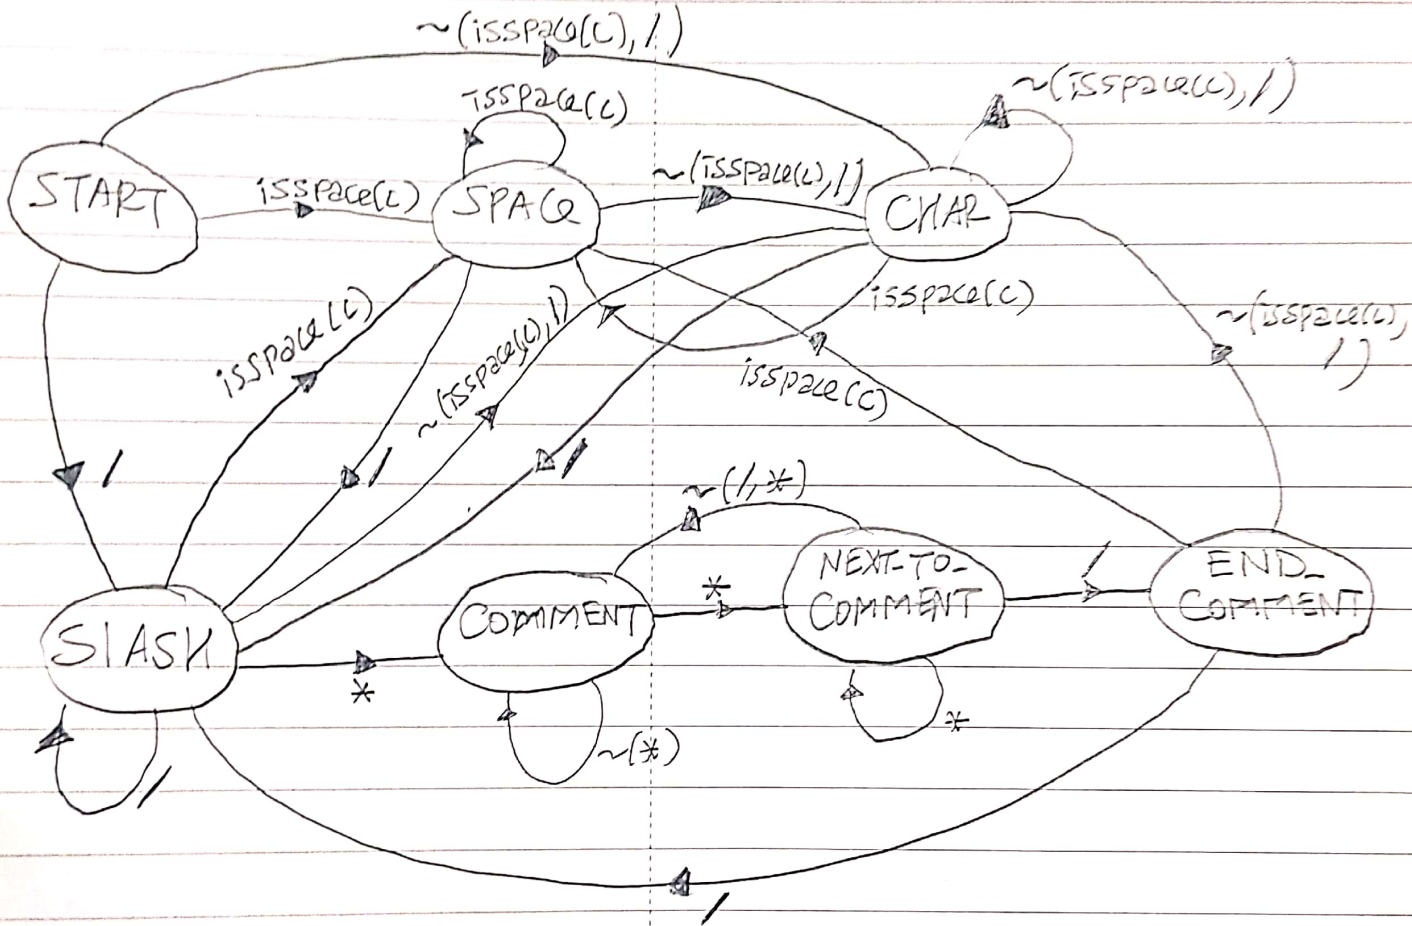 ~(isspace(c), /)
isspace(c)
~(isspace(c), /)
START
isspace(c)
SPACE
~(isspace(c), /)
CHAR
isspace(c)
~(isspace(c), /)
isspace(c)
~(isspace(c),
/)
isspace(c)
/
/
/
~(/, *)
SLASH
*
COMMENT
*
NEXT-TO-
COMMENT
/
END_
COMMENT
~(*)
*
/
/